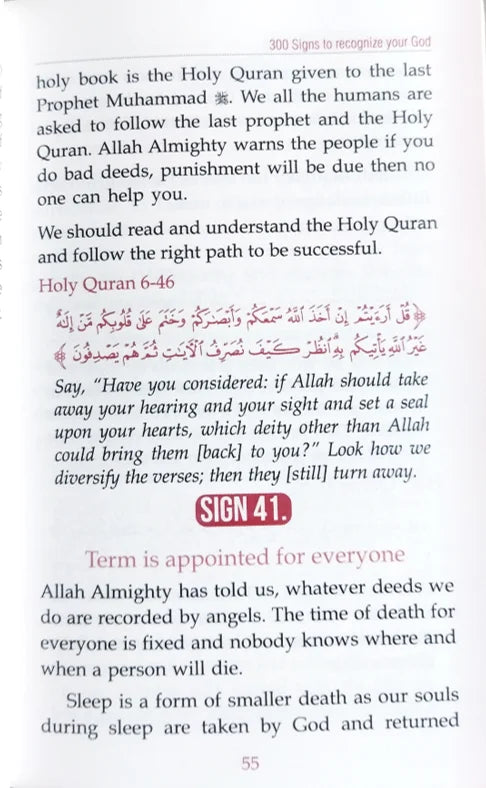 300 Signs to recognize your God
holy book is the Holy Quran given to the last
Prophet Muhammad ﷺ. We all the humans are
asked to follow the last prophet and the Holy
Quran. Allah Almighty warns the people if you
do bad deeds, punishment will be due then no
one can help you.
We should read and understand the Holy Quran
and follow the right path to be successful.
Holy Quran 6-46
﴿قُلْ أَرَءَيْتُمْ إِنْ أَخَذَ ٱللَّهُ سَمْعَكُمْ وَأَبْصَٰرَكُمْ وَخَتَمَ عَلَىٰ قُلُوبِكُم مَّنْ إِلَٰهٌ
غَيْرُ ٱللَّهِ يَأْتِيكُم بِهِ ۗ ٱنظُرْ كَيْفَ نُصَرِّفُ ٱلْءَايَٰتِ ثُمَّ هُمْ يَصْدِفُونَ﴾
Say, “Have you considered: if Allah should take
away your hearing and your sight and set a seal
upon your hearts, which deity other than Allah
could bring them [back] to you?” Look how we
diversify the verses; then they [still] turn away.
SIGN 41.
Term is appointed for everyone
Allah Almighty has told us, whatever deeds we
do are recorded by angels. The time of death for
everyone is fixed and nobody knows where and
when a person will die.
Sleep is a form of smaller death as our souls
during sleep are taken by God and returned
55